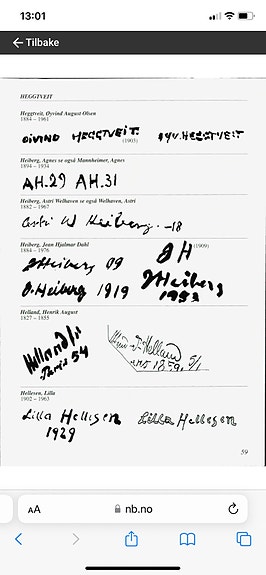 13:01
← Tilbake
HEGGTVEIT
Heggtveit, Øyvind August Olsen
1884 – 1961
ØIVIND HEGGTVEIT. (1903) ØYV. HEGGTVEIT
Heiberg, Agnes se også Mannheimer, Agnes
1894 – 1934
AH.29 AH.31
Heiberg, Astri Welhaven se også Welhaven, Astri
1882 – 1967
Astri W Heiberg. -18
Heiberg, Jean Hjalmar Dahl
1884 – 1976
JHeiberg 09 JH (1909)
J.Heiberg 1919 JHeiberg
1953
Holland, Henrik August
1827 – 1855
Paris 54
Hellesen, Lilla
1902 – 1963
Lilla Hellesen Lilla Hellesen
1929
59
AA nb.no